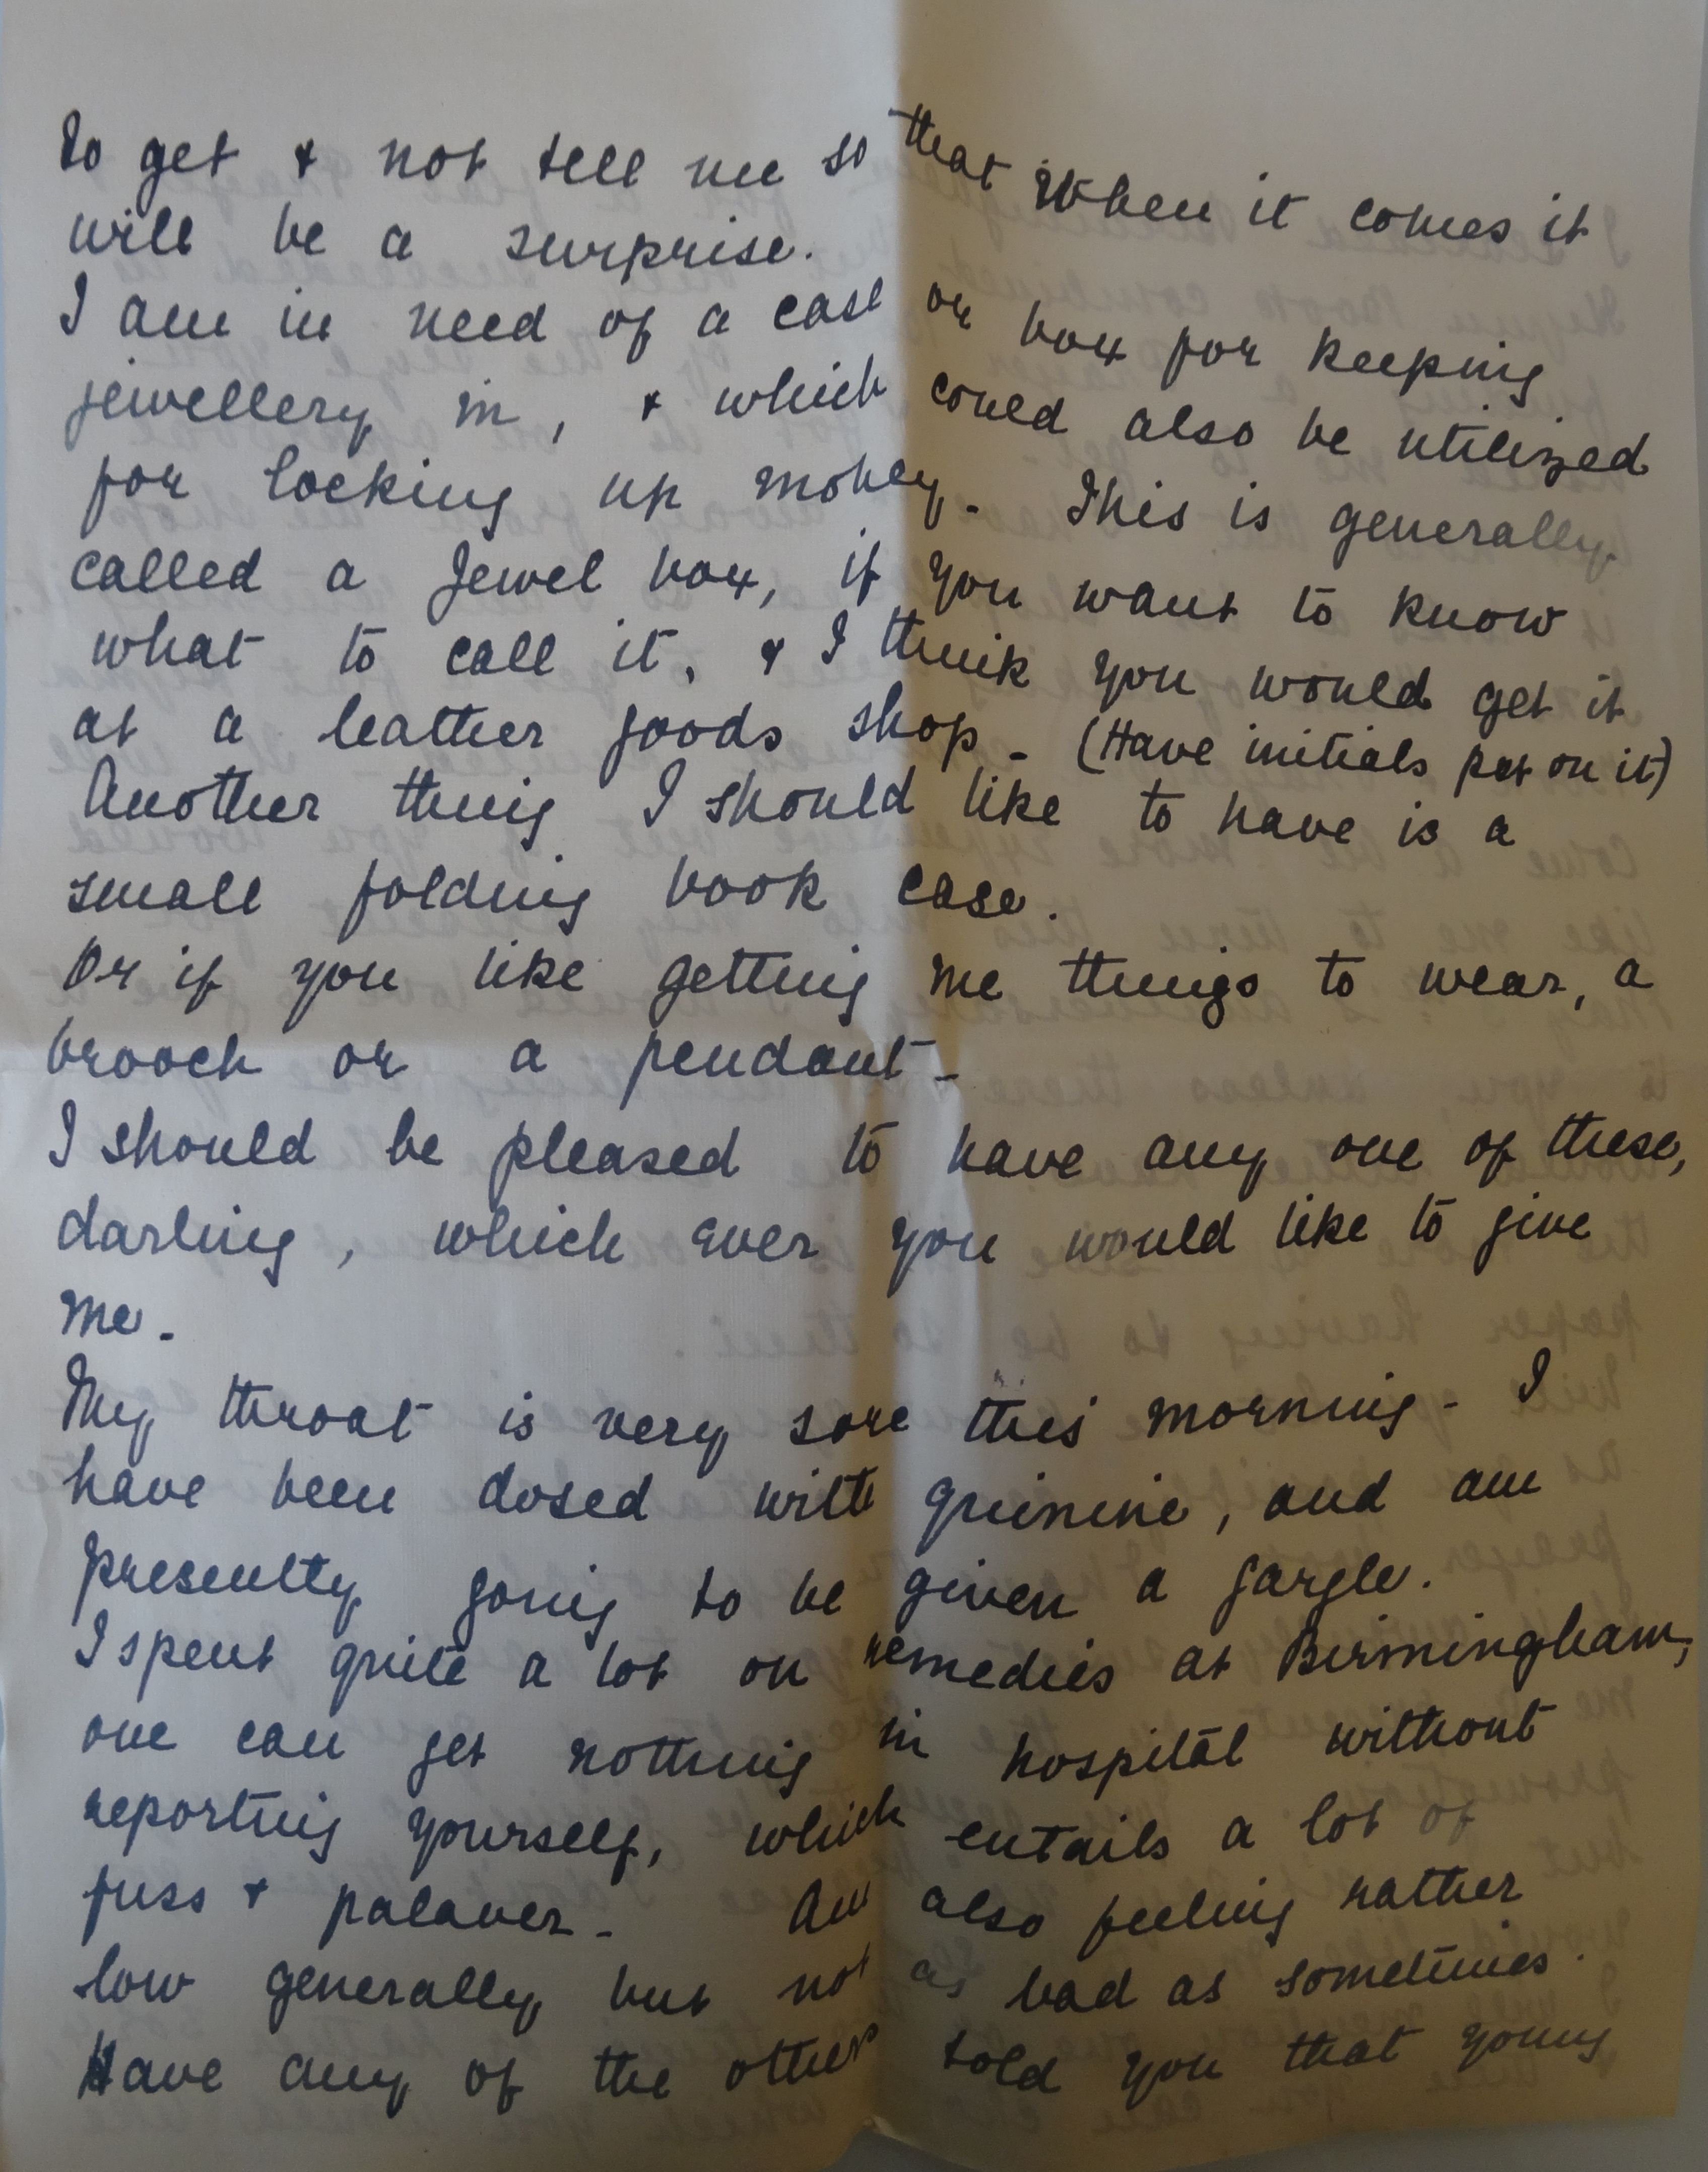 to get & not tell me so that when it comes it
will be a surprise.
I am in need of a case or box for keeping
jewellery in, & which could also be utilized
for locking up money. This is generally
called a Jewel box, if you want to know
what to call it, & I think you would get it
at a leather goods shop. (Have initials put on it)
Another thing I should like to have is a
small folding book case.
Or if you like getting me things to wear, a
brooch or a pendant.
I should be pleased to have any one of these,
darling, which ever you would like to give
me.
My throat is very sore this morning. I
have been dosed with quinine, and am
presently going to be given a gargle.
I spent quite a lot on remedies at Birmingham,
one can get nothing in hospital without
reporting yourself, which entails a lot of
fuss & palaver. Am also feeling rather
low generally but not as bad as sometimes.
Have any of the others told you that young